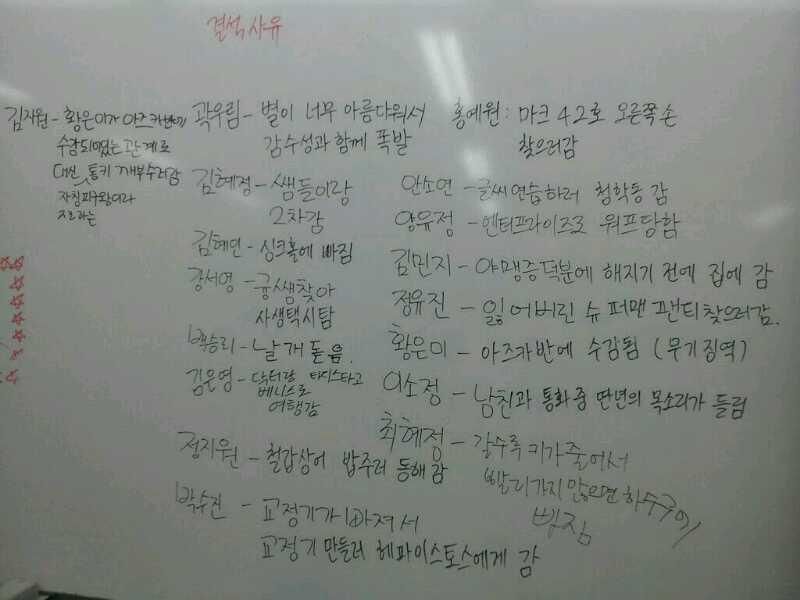 결석사유
김지원 - 황은미가 아즈카반에
수감되있는 관계로
대신 통키 깨부수러감
자칭피구왕이라
지으라는
곽우림 - 별이 너무 아름다워서
감수성과 함께 폭발
김혜정 - 쌤들이랑
2차감
김혜민 - 싱크홀에 빠짐
강서영 - 쌤찾아
사생택시탐
박승리 - 날개 돋음.
김은영 - 닥터랑 타디스타고
베니스로
여행감
정지원 - 철갑상어 밥주러 동해감
박수진 - 교정기가 빠져서
교정기 만들러 헤파이스토스에게 감
홍예원 : 마크 42호 오른쪽 손
찾으러감
안소연 - 글씨연습하러 청학동 감
양유정 - 엔터프라이즈로 워프당함
김민지 - 야맹증덕분에 해지기 전에 집에 감
정유진 - 잃어버린 슈퍼맨 빤티찾으러감.
황은미 - 아즈카반에 수감됨 (무기징역)
이소정 - 남친과 통화중 딴년의 목소리가 들림
최혜정 - 갈수록 키가줄어서
빨리가지 않으면 하수구에
빠짐